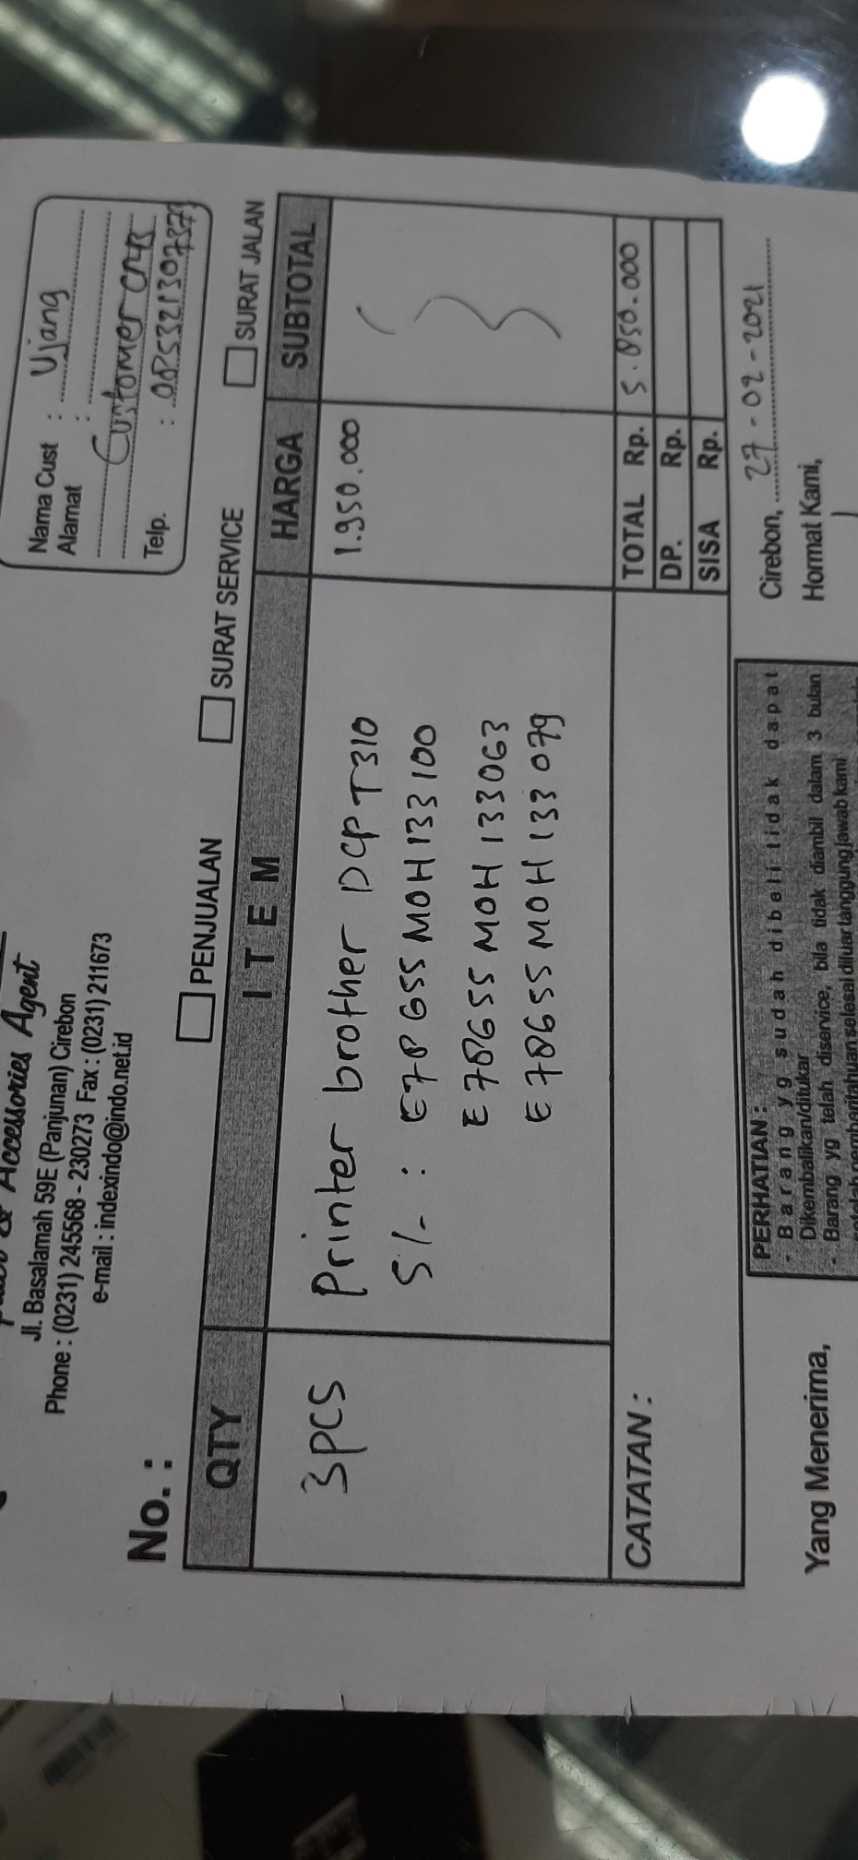 & Accessories Agent
Jl. Basalamah 59E (Panjunan) Cirebon
Phone : (0231) 245568 - 230273 Fax : (0231) 211673
e-mail : indexindo@indo.net.id
Nama Cust : Ujang
Alamat :
Customer
Telp. :
No. :
PENJUALAN
SURAT SERVICE
SURAT JALAN
QTY ITEM HARGA SUBTOTAL
3 pcs Printer brother DCP T310 1.950.000
S/- : E78655M0H133100
E78655M0H133063
E78655M0H133079
CATATAN :
TOTAL Rp. 5.850.000
DP. Rp.
SISA Rp.
Cirebon, 27-02-2021
Yang Menerima,
Hormat Kami,
PERHATIAN :
- Barang yg sudah dibeli tidak dapat
Dikembalikan/ditukar
- Barang yg telah diservice, bila tidak diambil dalam 3 bulan
setelah pemberitahuan selesai diluar tanggung jawab kami